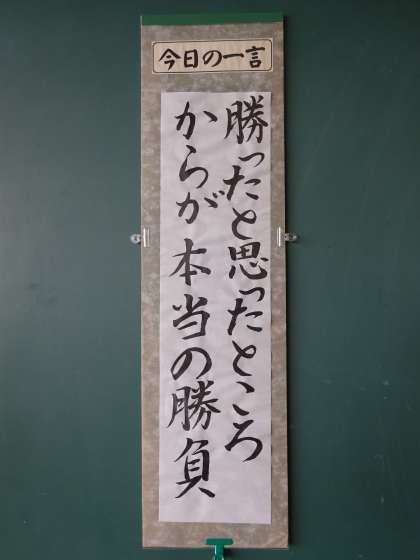 今日の一言
勝ったと思ったところ
からが本当の勝負